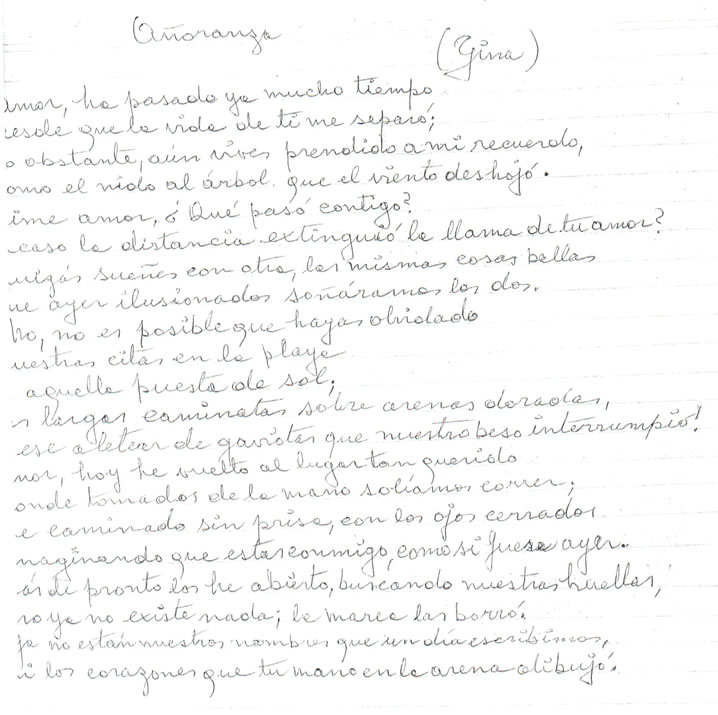 Añoranza
(Gina)
amor, ha pasado ya mucho tiempo
esde que la vida de ti me separó;
o obstante, aún vives prendido a mi recuerdo,
omo el nido al árbol que el viento deshojó.
ime amor, ¿Qué pasó contigo?
caso la distancia extinguió la llama de tu amor?
uizás sueñes con otra, las mismas cosas bellas
ue ayer ilusionados soñáramos los dos.
No, no es posible que hayas olvidado
uestras citas en la playa
aquella puesta de sol;
s largas caminatas sobre arenas doradas,
ese aletear de gaviotas que nuestro beso interrumpió!
mor, hoy he vuelto al lugar tan querido
onde tomados de la mano solíamos correr;
e caminado sin prisa, con los ojos cerrados
maginando que estas conmigo, como si fuese ayer.
ás de pronto los he abierto, buscando nuestras huellas,
ro ya no existe nada; la marea las borró.
ya no están nuestros nombres que un día escribimos,
i los corazones que tu mano en la arena dibujó.